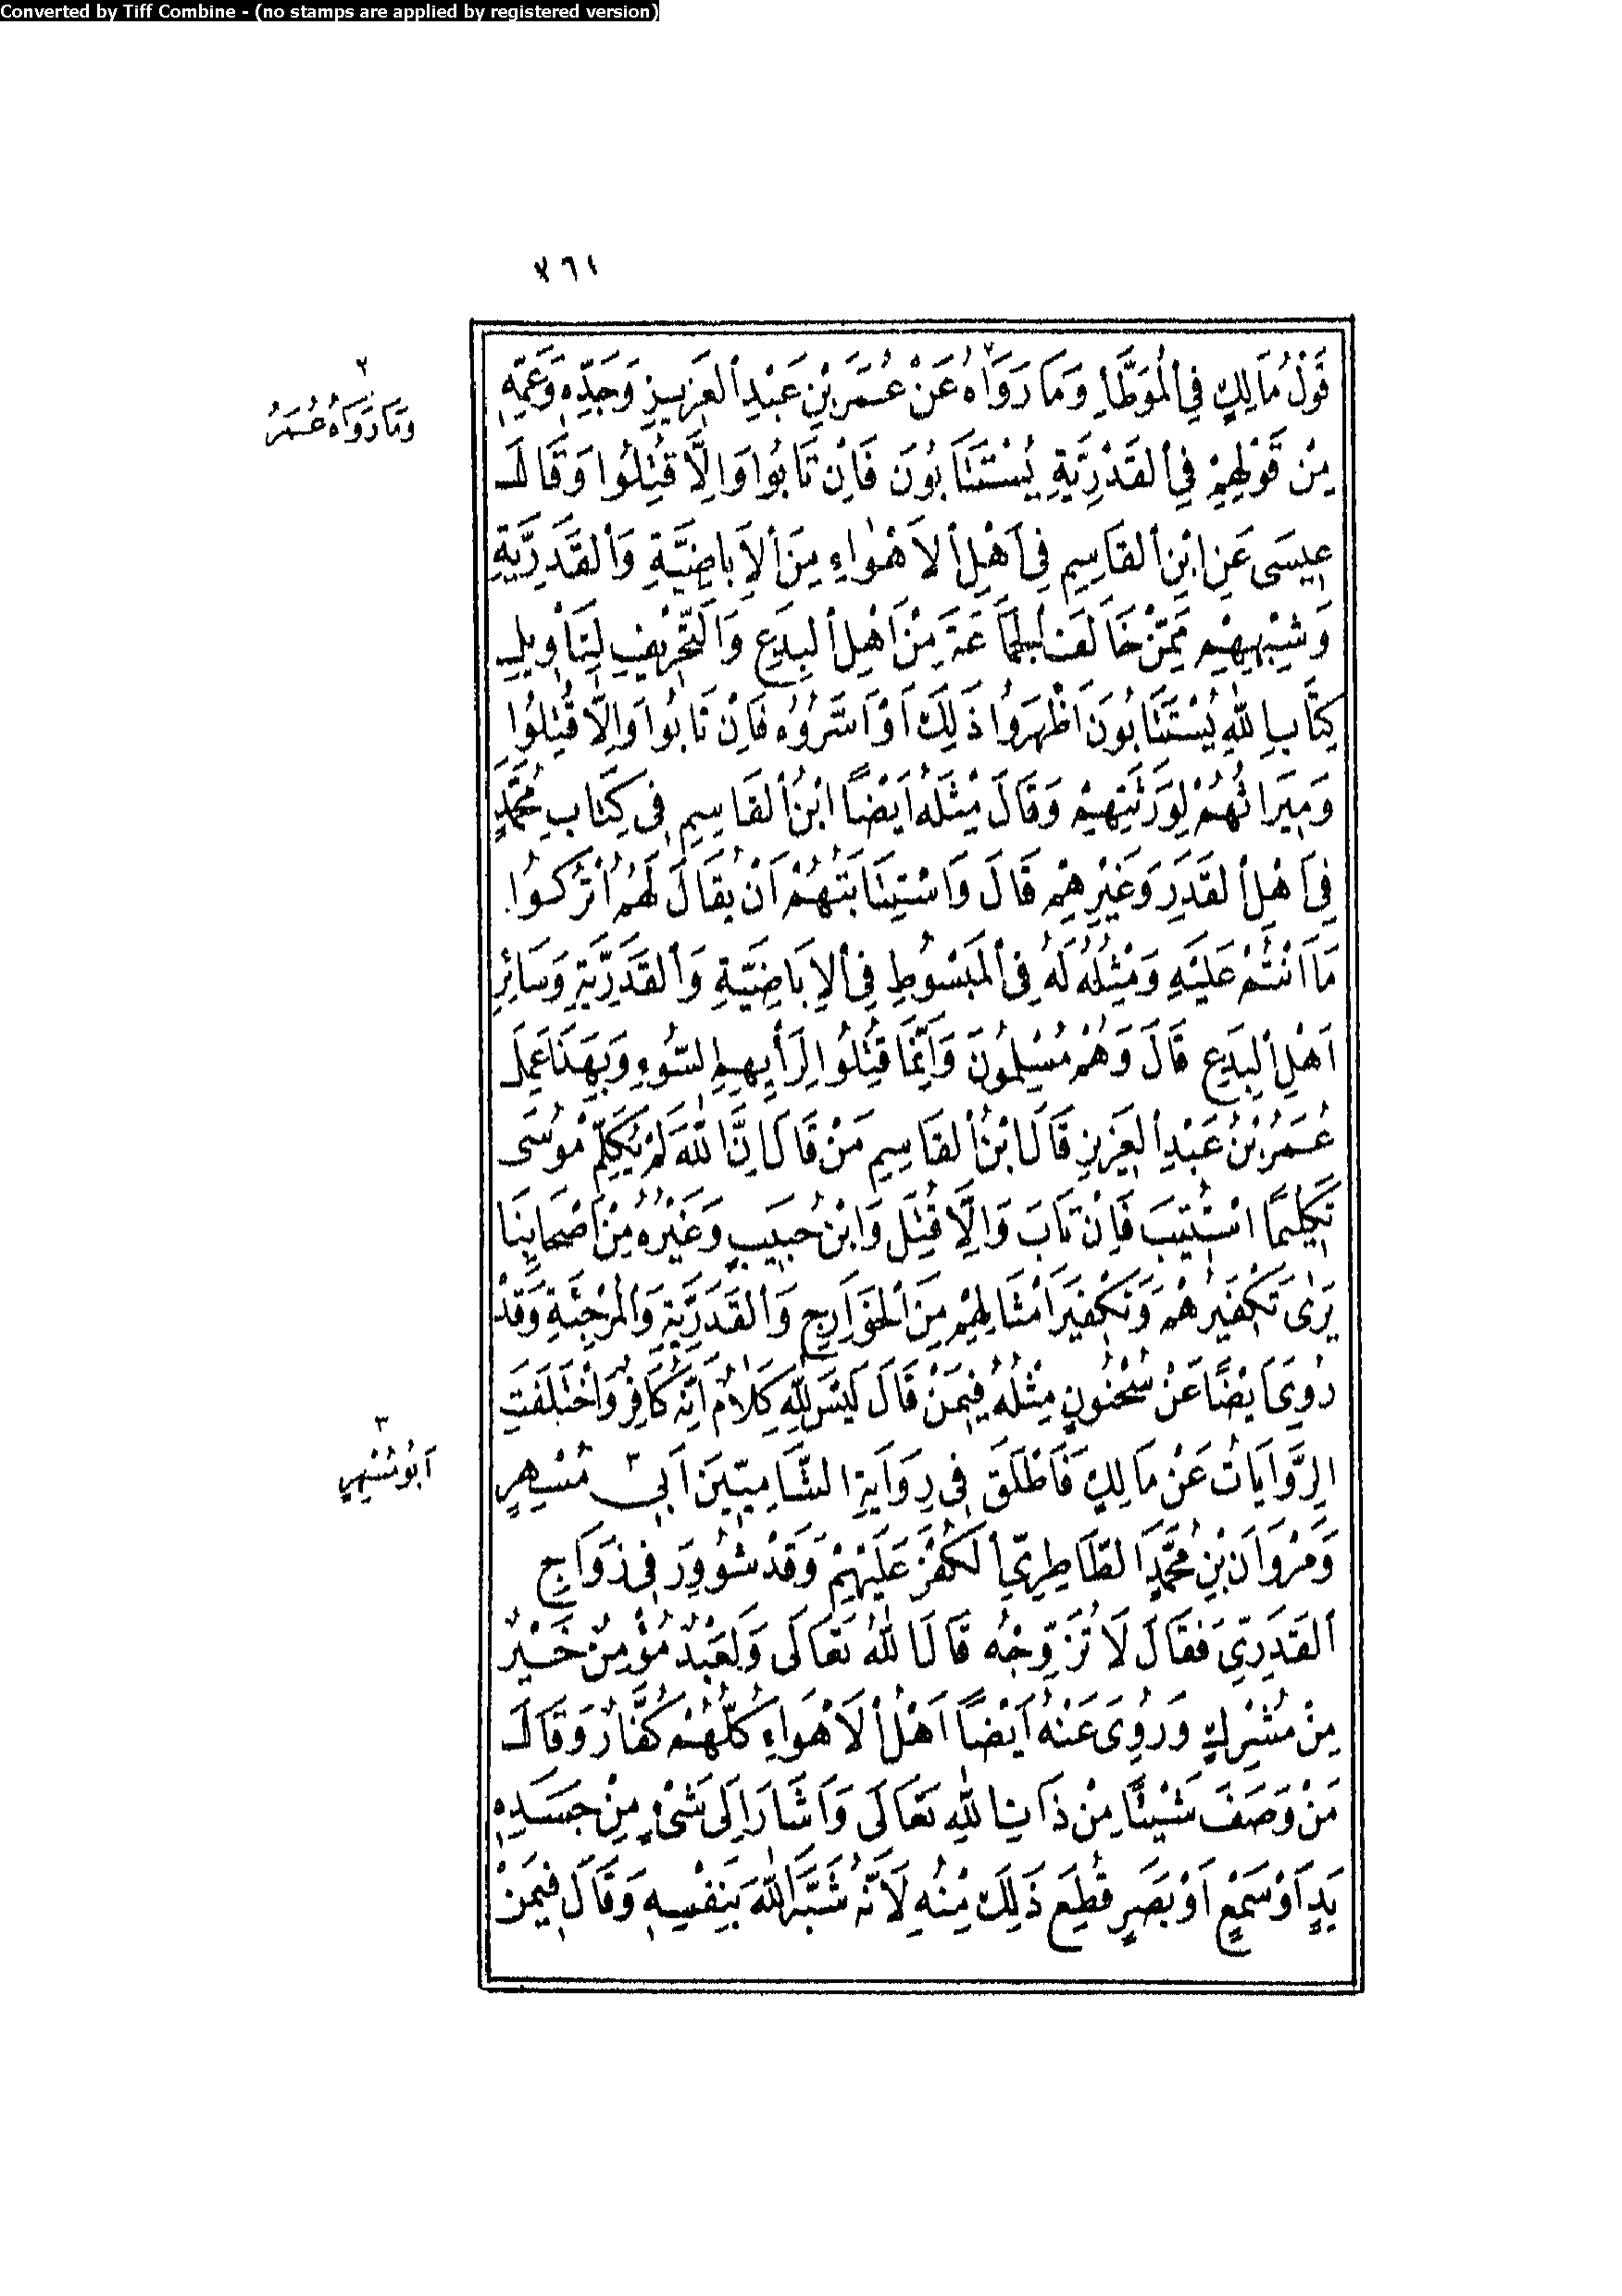 Converted by Tiff Combine - (no stamps are applied by registered version)
٢٦١
قَوْلُ مَالِكٍ فِي الْمُوَطَّأِ وَمَا رَوَاهُ٢ عَنْ عُمَرَ بْنِ عَبْدِ الْعَزِيزِ وَجَدِّهِ وَعَمِّهِ
مِنْ قَوْلِهِمْ فِي الْقَدَرِيَّةِ يُسْتَتَابُونَ فَإِنْ تَابُوا وَإِلَّا قُتِلُوا وَقَالَ
عِيسَى عَنِ ابْنِ الْقَاسِمِ فِي أَهْلِ الْأَهْوَاءِ مِنَ الْإِبَاضِيَّةِ وَالْقَدَرِيَّةِ
وَشِبْهِهِمْ مِمَّنْ خَالَفَ الْجَمَاعَةَ مِنْ أَهْلِ الْبِدَعِ وَالتَّحْرِيفِ لِتَأْوِيلِ
كِتَابِ اللهِ يُسْتَتَابُونَ أَظْهَرُوا ذَلِكَ أَوْ أَسَرُّوهُ فَإِنْ تَابُوا وَإِلَّا قُتِلُوا
وَمِيرَاثُهُمْ لِوَرَثَتِهِمْ وَقَالَ مِثْلَهُ أَيْضًا ابْنُ الْقَاسِمِ فِي كِتَابِ مُحَمَّدٍ
فِي أَهْلِ الْقَدَرِ وَغَيْرِهِمْ قَالَ وَاسْتِتَابَتُهُمْ أَنْ يُقَالَ لَهُمُ اتْرُكُوا
مَا أَنْتُمْ عَلَيْهِ وَمِثْلُهُ لَهُ فِي الْمَبْسُوطِ فِي الْإِبَاضِيَّةِ وَالْقَدَرِيَّةِ وَسَائِرِ
أَهْلِ الْبِدَعِ قَالَ وَهُمْ مُسْلِمُونَ وَإِنَّمَا قُتِلُوا لِرَأْيِهِمِ السُّوءِ وَبِهَذَا عَمِلَ
عُمَرُ بْنُ عَبْدِ الْعَزِيزِ قَالَ ابْنُ الْقَاسِمِ مَنْ قَالَ إِنَّ اللهَ لَمْ يُكَلِّمْ مُوسَى
تَكْلِيمًا اسْتُتِيبَ فَإِنْ تَابَ وَإِلَّا قُتِلَ وَابْنُ حَبِيبٍ وَغَيْرُهُ مِنْ أَصْحَابِنَا
يَرَى تَكْفِيرَهُمْ وَتَكْفِيرَ أَمْثَالِهِمْ مِنَ الْخَوَارِجِ وَالْقَدَرِيَّةِ وَالْمُرْجِئَةِ وَقَدْ
رُوِيَ أَيْضًا عَنْ سُحْنُونٍ مِثْلُهُ فِيمَنْ قَالَ لَيْسَ لِلّٰهِ كَلَامٌ أَنَّهُ كَافِرٌ وَاخْتَلَفَتِ
الرِّوَايَاتُ عَنْ مَالِكٍ فَأَطْلَقَ فِي رِوَايَةِ الشَّامِيِّينَ أَبِي٣ مُسْهِرٍ
وَمَرْوَانَ بْنِ مُحَمَّدٍ الطَّاطِرِيِّ الْكُفْرَ عَلَيْهِمْ وَقَدْ شُووِرَ فِي زَوَاجِ
الْقَدَرِيِّ فَقَالَ لَا تُزَوِّجْهُ قَالَ اللهُ تَعَالَى وَلَعَبْدٌ مُؤْمِنٌ خَيْرٌ
مِنْ مُشْرِكٍ وَرُوِيَ عَنْهُ أَيْضًا أَهْلُ الْأَهْوَاءِ كُلُّهُمْ كُفَّارٌ وَقَالَ
مَنْ وَصَفَ شَيْئًا مِنْ ذَاتِ اللهِ تَعَالَى وَأَشَارَ إِلَى شَيْءٍ مِنْ جَسَدِهِ
يَدٍ أَوْ سَمْعٍ أَوْ بَصَرٍ قُطِعَ ذَلِكَ مِنْهُ لِأَنَّهُ شَبَّهَ اللهَ بِنَفْسِهِ وَقَالَ فِيمَنْ
٢
وَمَا رَوَاهُ عُمَرُ
٣
أَبُو مُسْهِرٍ